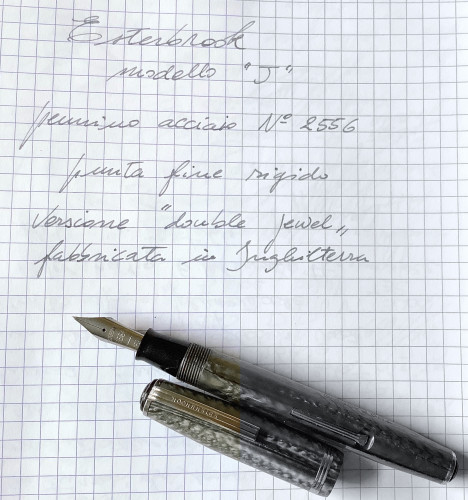 Esterbrook
modello "J"
pennino acciaio Nº 2556
punta fine rigido
Versione "double jewel"
fabbricata in Inghilterra
ESTERBROOK